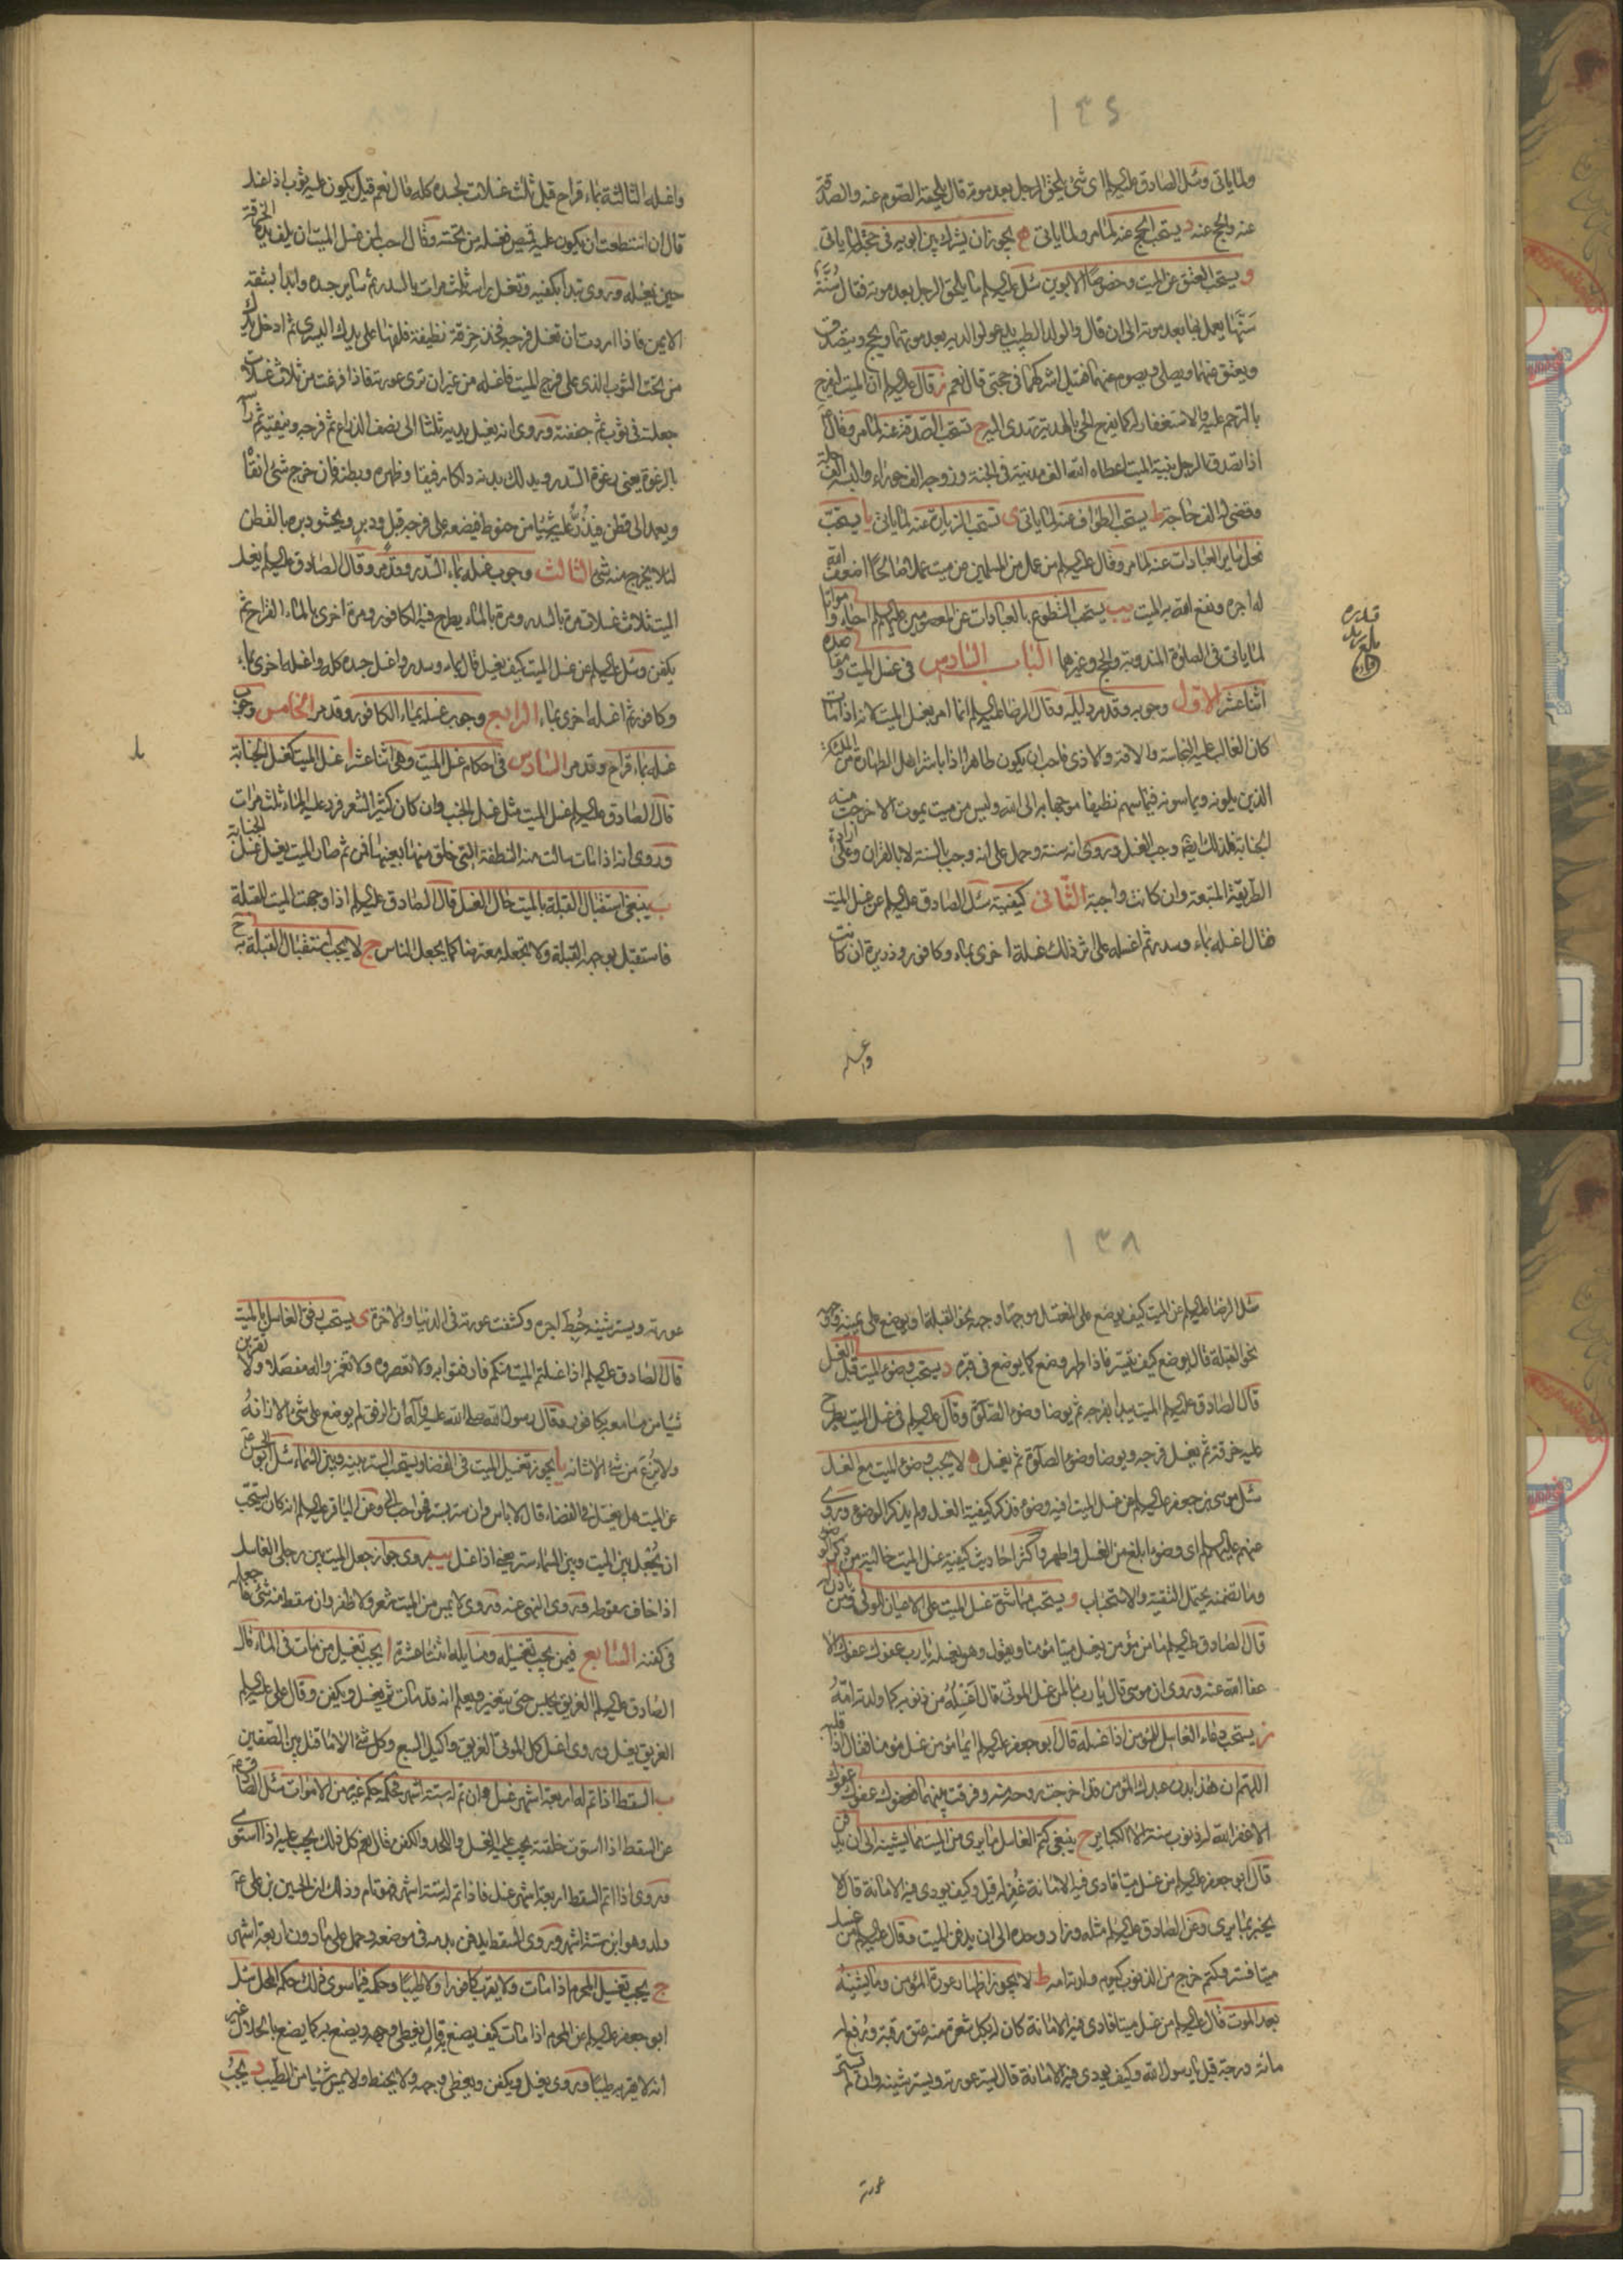 ١٣٤
ولما ياتى وسئل الصادق عليه السلم اى شئ يلحق الرجل بعد موته قال يلحقه الصوم عنه والصدقة
عنه والحج عنه د يستحب الحج عنه لما مر ولما ياتى ه يجوز ان يشرك بين ابويه فى حجة لما ياتى
و يستحب العتق عن الميت وخصوصا الابوين سئل عليه السلم ما يلحق الرجل بعد موته فقال سُنَّة
سَنَّها يعمل بها بعد موته الى ان قال والولد الطيب يدعو لوالديه بعد موتهما ويحج ويتصدق
ويعتق عنهما ويصلى ويصوم عنهما فقيل اشركهما فى حجتى قال نعم ز قال عليه السلم ان الميت ليفرح
بالترحم عليه والاستغفار له كما يفرح الحى بالهدية تهدى اليه ح تستحب الصدقة عنه لما مر وقال
اذا تصدق الرجل بنية الميت اعطاه الله الف مدينة فى الجنة وزوجه الف حوراء والبسه الف حلة
وقضى له الف حاجة ط يستحب الطواف عنه لما ياتى ى تستحب الزيارة عنه لما ياتى يا يستحب
فعل ساير العبادات عنه لما مر وقال عليه السلم من عمل من المسلمين عن ميت عملا صالحا اضعف الله
له اجره ونفع الله به الميت يب يستحب التطوع بالعبادات عن المعصومين عليهم السلم احياء وامواتا
لما ياتى فى الصلوة المندوبة والحج وغيرهما الباب السادس فى غسل الميت ومقاصده
اثنا عشر الاول وجوبه وقد مر دليله وقال الرضا عليه السلم انما امر بغسل الميت لانه اذا مات
كان الغالب عليه النجاسة والافة والاذى فاحب ان يكون طاهرا اذا باشر اهل الطهارة من الملئكة
الذين يلونه ويماسونه فيماسهم نظيفا موجها به الى الله وليس من ميت يموت الا خرجت منه
الجنابة فلذلك ايضا وجب الغسل وروى انه سنة وحمل على انه وجب بالسنة لا بالقران وعلى ارادة
الطريقة المتبعة وان كانت واجبة الثانى كيفيته سئل الصادق عليه السلم عن غسل الميت
فقال اغسله بماء وسدر ثم اغسله على اثر ذلك غسلة اخرى بماء وكافور وذريرة ان كانت
واغسله
واغسله الثالثة بماء قراح قيل ثلث غسلات لجسده كله قال نعم قيل يكون عليه ثوب اذا غسل
قال ان استطعت ان يكون عليه قميص فغسله من تحته وقال احب لمن غسل الميت ان يلف يده الخرقة
حين يغسله وروى تبدأ بكفيه وتغسل راسه ثلث مرات بالسدر ثم ساير جسده وابدأ بشقه
الايمن فاذا اردت ان تغسل فرجه فخذ خرقة نظيفة فلفها على يدك اليسرى ثم ادخل يدك
من تحت الثوب الذى على فرج الميت فاغسله من غير ان ترى عورته فاذا فرغت من ثلاث غسلات
جعلته فى ثوب ثم جففته وروى انه يغسل يديه ثلثا الى نصف الذراع ثم فرجه وينقيه ثم رأسه
بالرغوة يعنى رغوة السدر ويدلك بدنه دلكا رفيقا وظهره وبطنه فان خرج شئ انقاه
ويعمد الى قطن فيذُرُّ عليه شيئا من حنوط فيضعه على فرجه قبل ودبر ويحشو دبره بالقطن
لئلا يخرج منه شئ الثالث وجوب غسله بماء السدر وقد مر وقال الصادق عليه السلم يغسل
الميت ثلاث غسلات مرة بالسدر ومرة بالماء يطرح فيه الكافور ومرة اخرى بالماء القراح ثم
يكفن وسئل عليه السلم عن غسل الميت كيف يغسل قال بماء وسدر واغسل جسده كله واغسله اخرى بماء
وكافور ثم اغسله اخرى بماء الرابع وجوب غسله بماء الكافور وقد مر الخامس وجوب
غسله بماء قراح وقد مر السادس فى احكام غسل الميت وهى اثنا عشر ا غسل الميت كغسل الجنابة
قال الصادق عليه السلم غسل الميت مثل غسل الجنب وان كان كثير الشعر فرد عليه الماء ثلث مرات
وروى انه اذا مات سالت منه النطفة التى خلق منها بعينها فمن ثم صار الميت يغسل غسل الجنابة
ب ينبغى استقبال القبلة بالميت حال الغسل قال الصادق عليه السلم اذا وجهت الميت للقبلة
فاستقبل بوجهه القبلة ولا تجعله معترضا كما يجعل الناس ج لا يجب استقبال القبلة به
١٣٨
سئل الرضا عليه السلم عن الميت كيف يوضع على المغتسل موجها وجهه نحو القبلة او يوضع على يمينه ووجهه
نحو القبلة قال يوضع كيف تيسر فاذا طهر وضع كما يوضع فى قبره د يستحب وضوء الميت قبل الغسل
قال الصادق عليه السلم الميت يبدأ بفرجه ثم يوضا وضوء الصلوة وقال عليه السلم فى غسل الميت يطرح
عليه خرقة ثم يغسل فرجه ويوضا وضوء الصلوة ثم يغسل ه لا يجب وضوء الميت مع الغسل
سئل موسى بن جعفر عليه السلم عن غسل الميت افيه وضوء فذكر كيفية الغسل ولم يذكر الوضوء وروى
عنهم عليهم السلم اى وضوء ابلغ من الغسل واطهر واكثر احاديث كيفية غسل الميت خالية من ذكر الوضوء
وما تضمنه يحتمل التقية والاستحباب و يستحب مباشرة غسل الميت على الاعيان الولى ومن ياذن له
قال الصادق عليه السلم ما من مؤمن يغسل ميتا مؤمنا ويقول وهو يغسله يا رب عفوك عفوك الا
عفا الله عنه وروى ان موسى قال يا رب ما لمن غسل الموتى قال اَغْسِلُهُ من ذنوبه كما ولدته امّه
ز يستحب دعاء الغاسل للمؤمن اذا غسله قال ابو جعفر عليه السلم ايما مؤمن غسل مؤمنا فقال اذا قلبه
اللهم ان هذا بدن عبدك المؤمن قد اخرجت روحه منه وفرقت بينهما فعفوك عفوك عفوك
الا غفر الله له ذنوب سنة الا الكبائر ح ينبغى كتم الغاسل ما يرى من الميت مما يشينه الى ان يدفن
قال ابو جعفر عليه السلم من غسل ميتا فادى فيه الامانة غُفِر له قيل وكيف يودى فيه الامانة قال لا
يخبر بما يرى وعن الصادق عليه السلم مثله وزاد وحده الى ان يدفن الميت وقال عليه السلم من غسل
ميتا فستر وكتم خرج من الذنوب كيوم ولدته امه ط لا يجوز اظهار عورة المؤمن وما يشينه
بعد الموت قال عليه السلم من غسل ميتا فادى فيه الامانة كان له بكل شعرة منه عتق رقبة ورفع له
مائة درجة قيل يا رسول الله وكيف يودى فيه الامانة قال يستر عورته ويستر شينه وان لم يستر
عورته
عورته ويستر شينه حُبِط اجره وكشفت عورته فى الدنيا والاخرة ى يستحب رفق الغاسل بالميت
قال الصادق عليه السلم اذا غسلتم الميت منكم فارفقوا به ولا تعصروه ولا تغمزوا له مفصلا ولا تقربن
شيئا من مسامعه بكافور وقال رسول الله صلى الله عليه وآله ان الرفق لم يوضع على شئ الا زانهُ
ولا نُزِع من شئ الا شانه يا يجوز تغسيل الميت فى الفضاء ويستحب الستر بينه وبين السماء سئل ابو الحسن
عن الميت هل يغسل فى الفضاء قال لا باس وان ستر بستر فهو احب الى وعن الباقر عليه السلم انه كان يستحب
ان يُجْعل بين الميت وبين السماء ستر يعنى اذا غسل يب روى جواز جعل الميت بين رجلى الغاسل
اذا خاف سقوطه وروى النهى عنه وروى لا يمس من الميت شعر ولا ظفر وان سقط منه شئ فاجعله
فى كفنه السابع فيمن يجب تغسيله ومسايله اثنتا عشرة ا يجب تغسيل من مات فى الماء قال
الصادق عليه السلم الغريق يحبس حتى يتغير ويعلم انه قد مات ثم يغسل ويكفن وقال على عليه السلم
الغريق يغسل وروى اغسل كل الموتى الغريق واكيل السبع وكل شئ الا ما قتل بين الصفين
ب السقط اذا تم له اربعة اشهر غسل وان تم له ستة اشهر فحكمه حكم غيره من الاموات سئل الصادق
عن السقط اذا استوت خلقته يجب عليه الغسل واللحد والكفن فقال نعم كل ذلك يجب عليه اذا استوى
وروى اذا تم السقط اربعة اشهر غسل فاذا تم له ستة اشهر فهو تام وذلك ان الحسين بن على
ولد وهو ابن ستة اشهر وروى السقط يدفن بدمه فى موضعه وحمل على ما دون اربعة اشهر
ج يجب تغسيل المحرم اذا مات ولا يقرب كافورا ولا طيبا وحكمه فيما سوى ذلك حكم المحل سئل
ابو جعفر عليه السلم عن المحرم اذا مات كيف يصنع به قال يغطى وجهه ويصنع به كما يصنع بالحلال غير
انه لا يقربه طيبا وروى يغسل ويكفن ويغطى وجهه ولا يحنط ولا يمس شيئا من الطيب د يجبُ